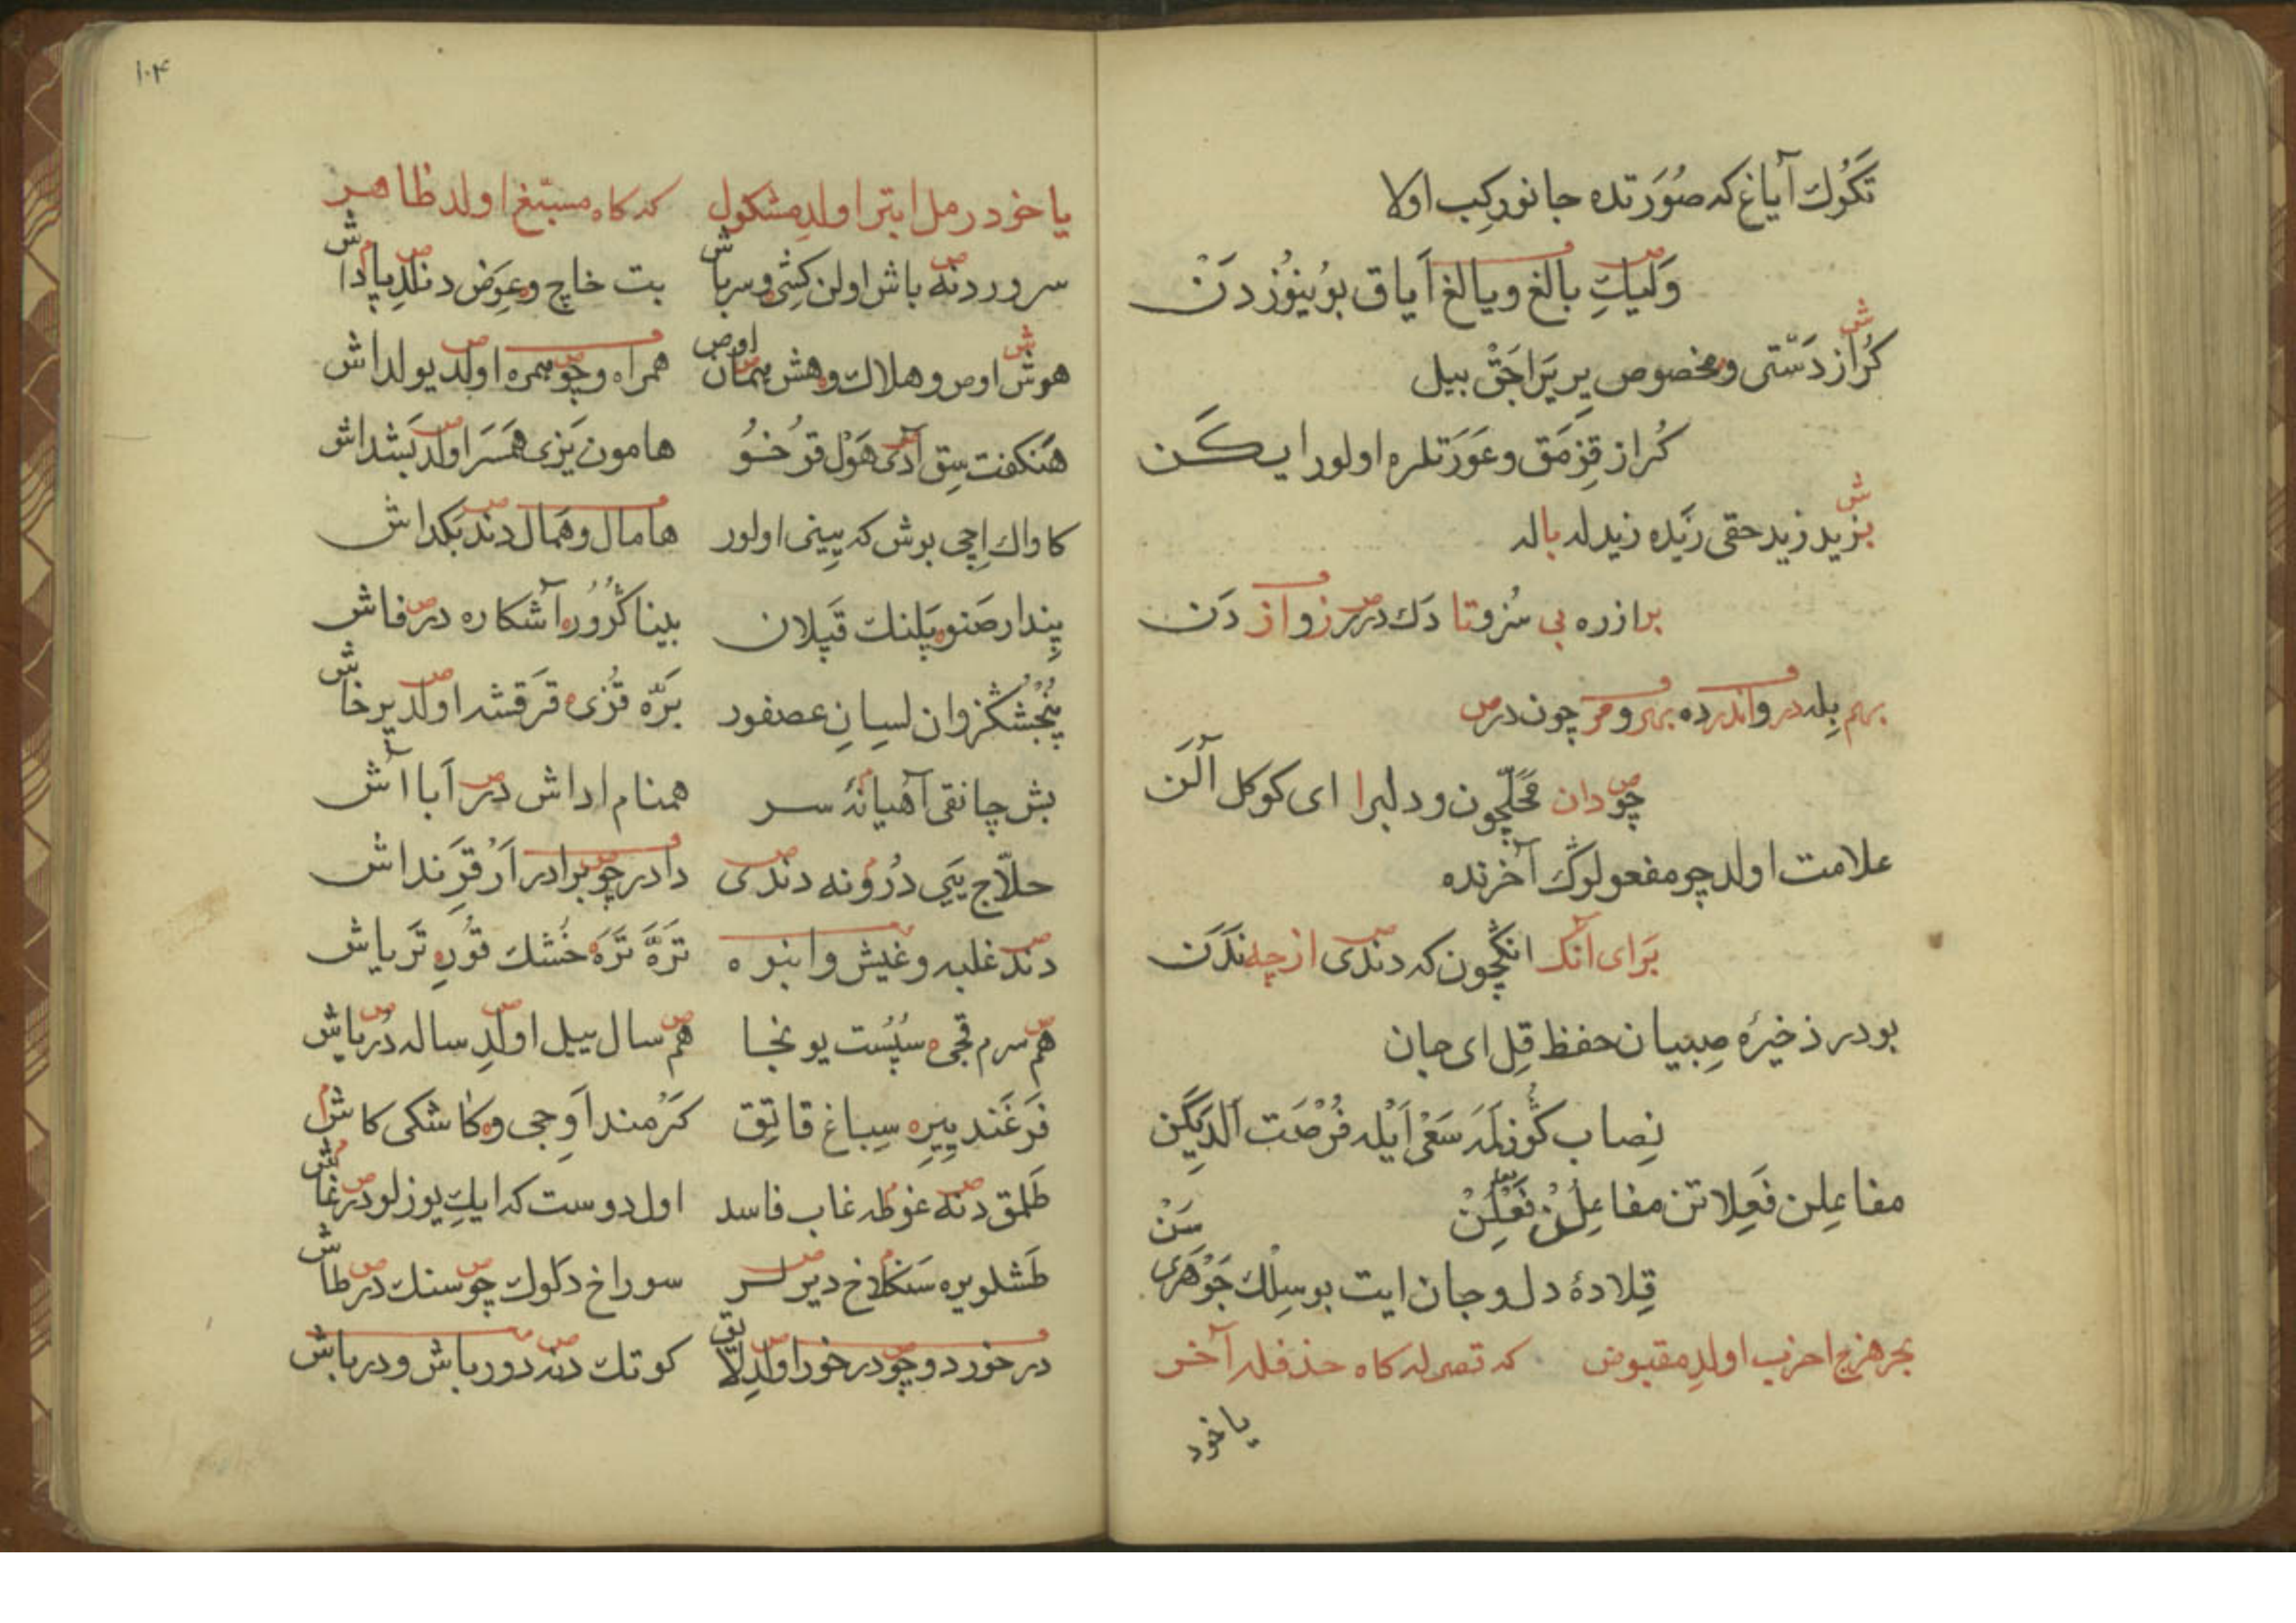 تكوك آياغ كه صورتده جانور كب اولا
وليك بالغ ويالغ اياق بوينوزدن
كراز دستى ومخصوص ير يراجق بيل
كراز قزمق وعورتلره اولور ايكن
بزيد زيد حقى زيده زيدله باله
برازره بى سزوتا دك در رزواز دن
بهم بله در واندرده بهرومر چون در
چودان محلچون ودلبرا اى كوكل آلن
علامت اولد چو مفعولوڭ آخرنده
براى آنك انكچون كه دندى ازچه ندن
بودر ذخيرۀ صبيان حفظ قل اى جان
نصاب كوزلمه سعى ايله فرصت الديكن
مفاعلن فعلاتن مفاعلن فعلن
قلادۀ دل وجان ايت بو سلك جوهرى سن
بحر هزج اخرب اولد مقبوض كه قصرله كاه حذفله آخر
ياخود
١٠٤
ياخود رمل ابتر اولد مشكول كه كاه مسبغ اولد ظاهر
سرور دنه باش اولن كشى وسرباش بت خاچ وعوض دنلد پاداش
هوش اوص وهلاك وهش همان اوص همراه وچو همره اولد يولداش
هنكفت سق آدى هول قرخو هامون يزى همسر اولد بشداش
كاواك اچى بوش كه پينى اولور هامال وهمال دند بكداش
پندار صنو پلنك قپلان بينا كورور آشكاره در فاش
پنجشكزوان لسان عصفور بره قزى قرقشه اولد پرخاش
بش چانقى آهيانۀ سر همنام اداش در آبا آش
حلاج يى درونه دندى دادر چو برادر ار قرنداش
دند غلبه وغيش وانبوه تره تره خشك قورى تر ياش
هم سرم قجى سپست يونجا هم سال ييل اولد ساله در ياش
فرغند پيره سباغ قاتق كرمند اوجى وكاشكى كاش
طلمق دنه غوطه غاب فاسد اول دوست كه ايك يوزلودر غاش
طشلو يره سنكلاخ ديرلر سوراخ دلوك چو سنك در طاش
درخورد وچو درخور اولد لايق كوتك دنه دورباش ودرباش